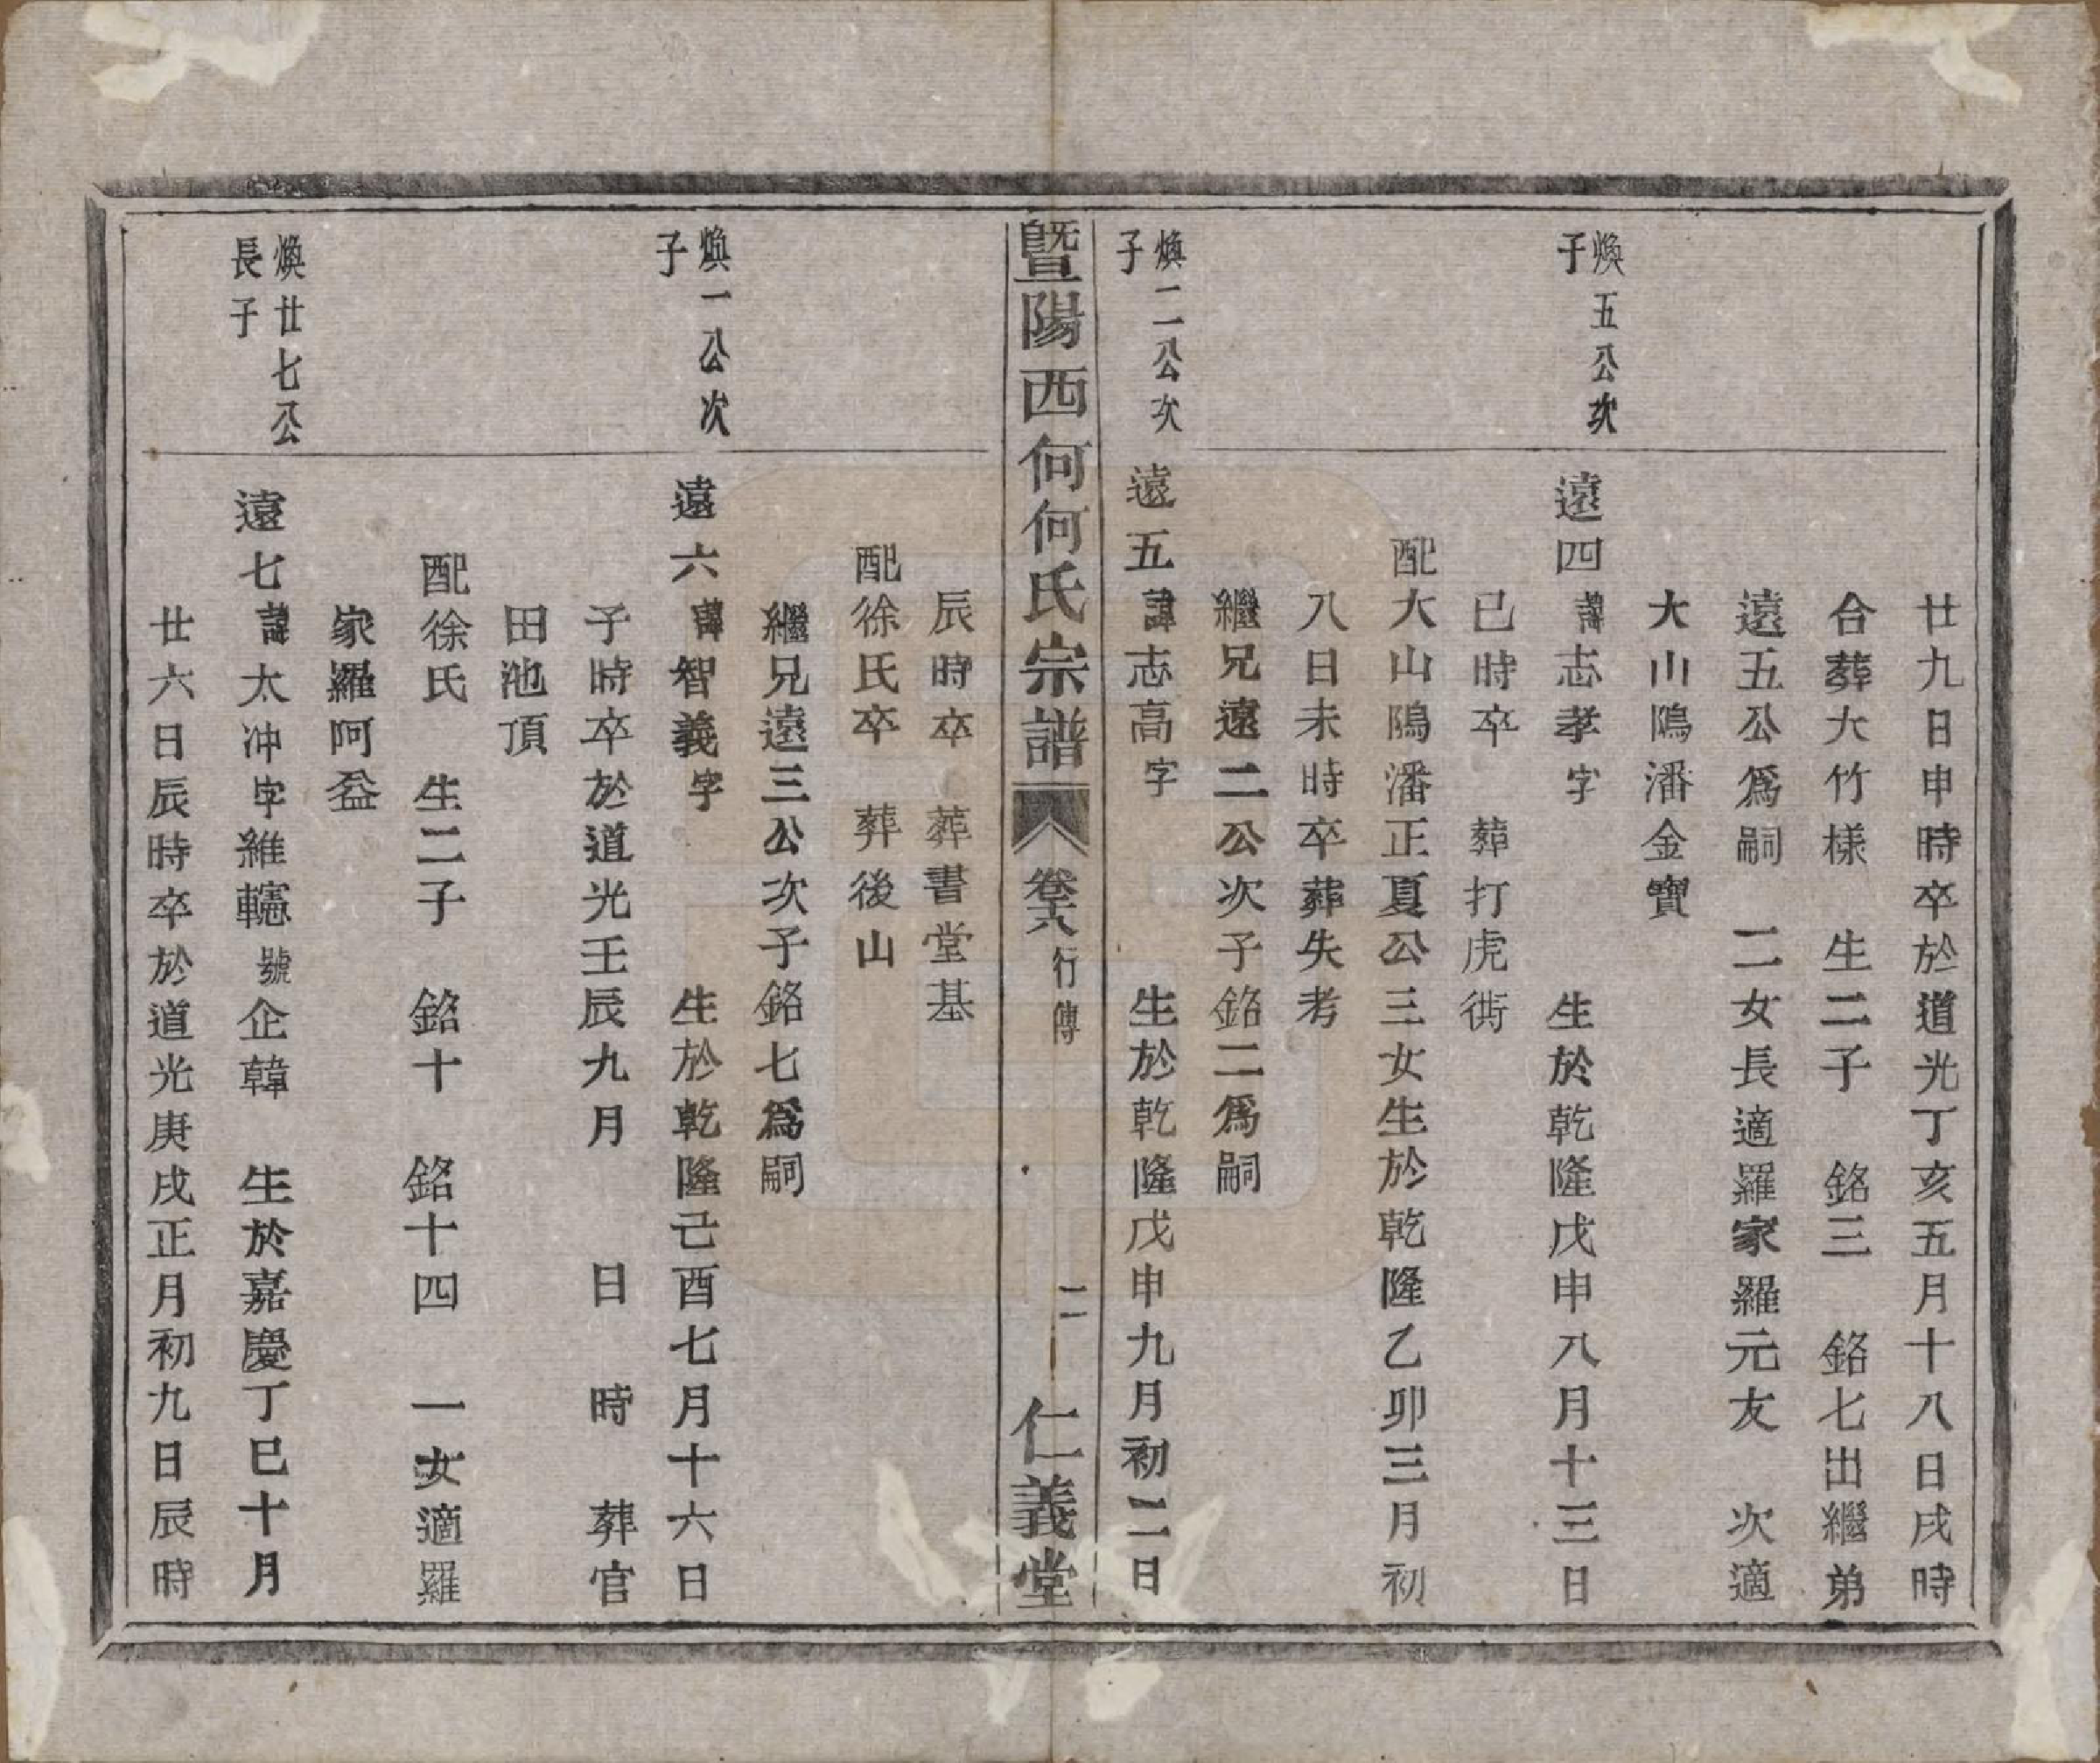 廿九日申時卒於道光丁亥五月十八日戌時
合葬大竹樣　生二子　銘三　銘七出繼弟
遠五公爲嗣　二女長適羅家羅元友　次適
大山隝潘金寶
煥五公次
子
遠四諱志孝字　生於乾隆戊申八月十三日
巳時卒　葬打虎衖
配大山隝潘正夏公三女生於乾隆乙卯三月初
八日未時卒葬失考
繼兄遠二公次子銘二爲嗣
煥二公次
子
遠五諱志高字　生於乾隆戊申九月初二日
暨陽西何何氏宗譜　卷六　行傳　二　仁義堂
辰時卒　葬書堂基
配徐氏卒　葬後山
繼兄遠三公次子銘七爲嗣
煥一公次
子
遠六諱智義字　生於乾隆己酉七月十六日
子時卒於道光壬辰九月　日　時　葬官
田池頂
配徐氏　生二子　銘十　銘十四　一女適羅
家羅阿益
煥廿七公
長子
遠七諱太冲字維轤號企韓　生於嘉慶丁巳十月
廿六日辰時卒於道光庚戌正月初九日辰時